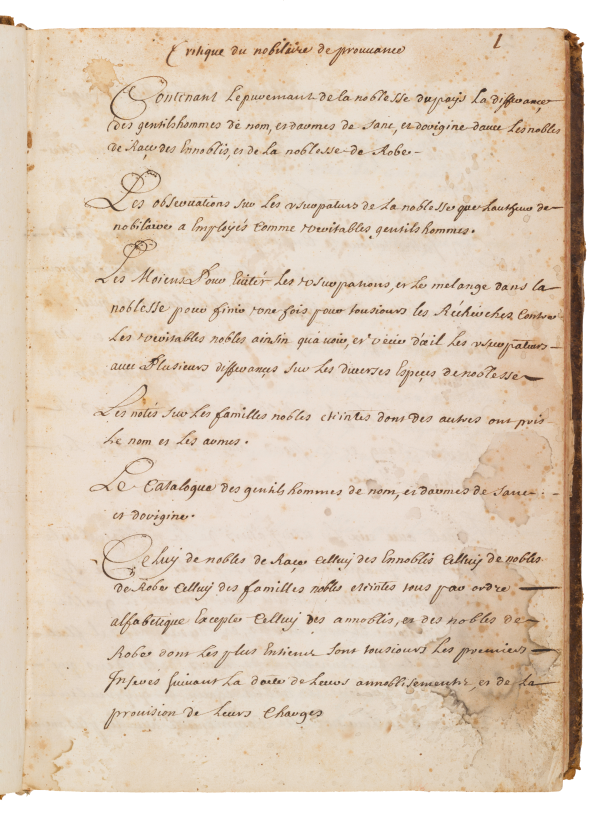 Critique du nobiliaire de prouuance
1
Contenant Le puremant de la noblesse du pays La differance,
des gentilshommes de nom, et d'armes de Sanc, et dorigine dauec Les nobles
de Raçe des Ennoblis, et de La noblesse de Robe -
Les obseruations sur Les vsurpateurs de La noblesse que Lautheur de
nobiliaire a Employés Comme veritables gentilshommes.
Les Moiens Pour Euiter Les vsurpations, et Le mélange dans la
noblesse pour finir vne fois pour tousiours les Récherches Contre
Les veritables nobles ainsin qua voir, et veüe d'œil Les vsurpateurs
auec Plusieurs differançes sur Les diuerses Especes de noblesse
Les notes sur Les familles nobles eteintes dont des autres ont pris
Le nom et Les armes.
Le Catalogue des gentilshommes de nom, et d'armes de Sanc
et dorigine.
Celuy de nobles de Raçe Celluy des Ennoblis Celluy de nobles
de Robe Celluy des familles nobles eteintes tous par ordre
alfabetique Excepte Celluy des annoblis, et des nobles de
Robe dont Les plus Entiens Sont tousiours Les premiers
Inserés suiuant La datte de Leurs annoblisements, et de La
prouision de Leurs Charges